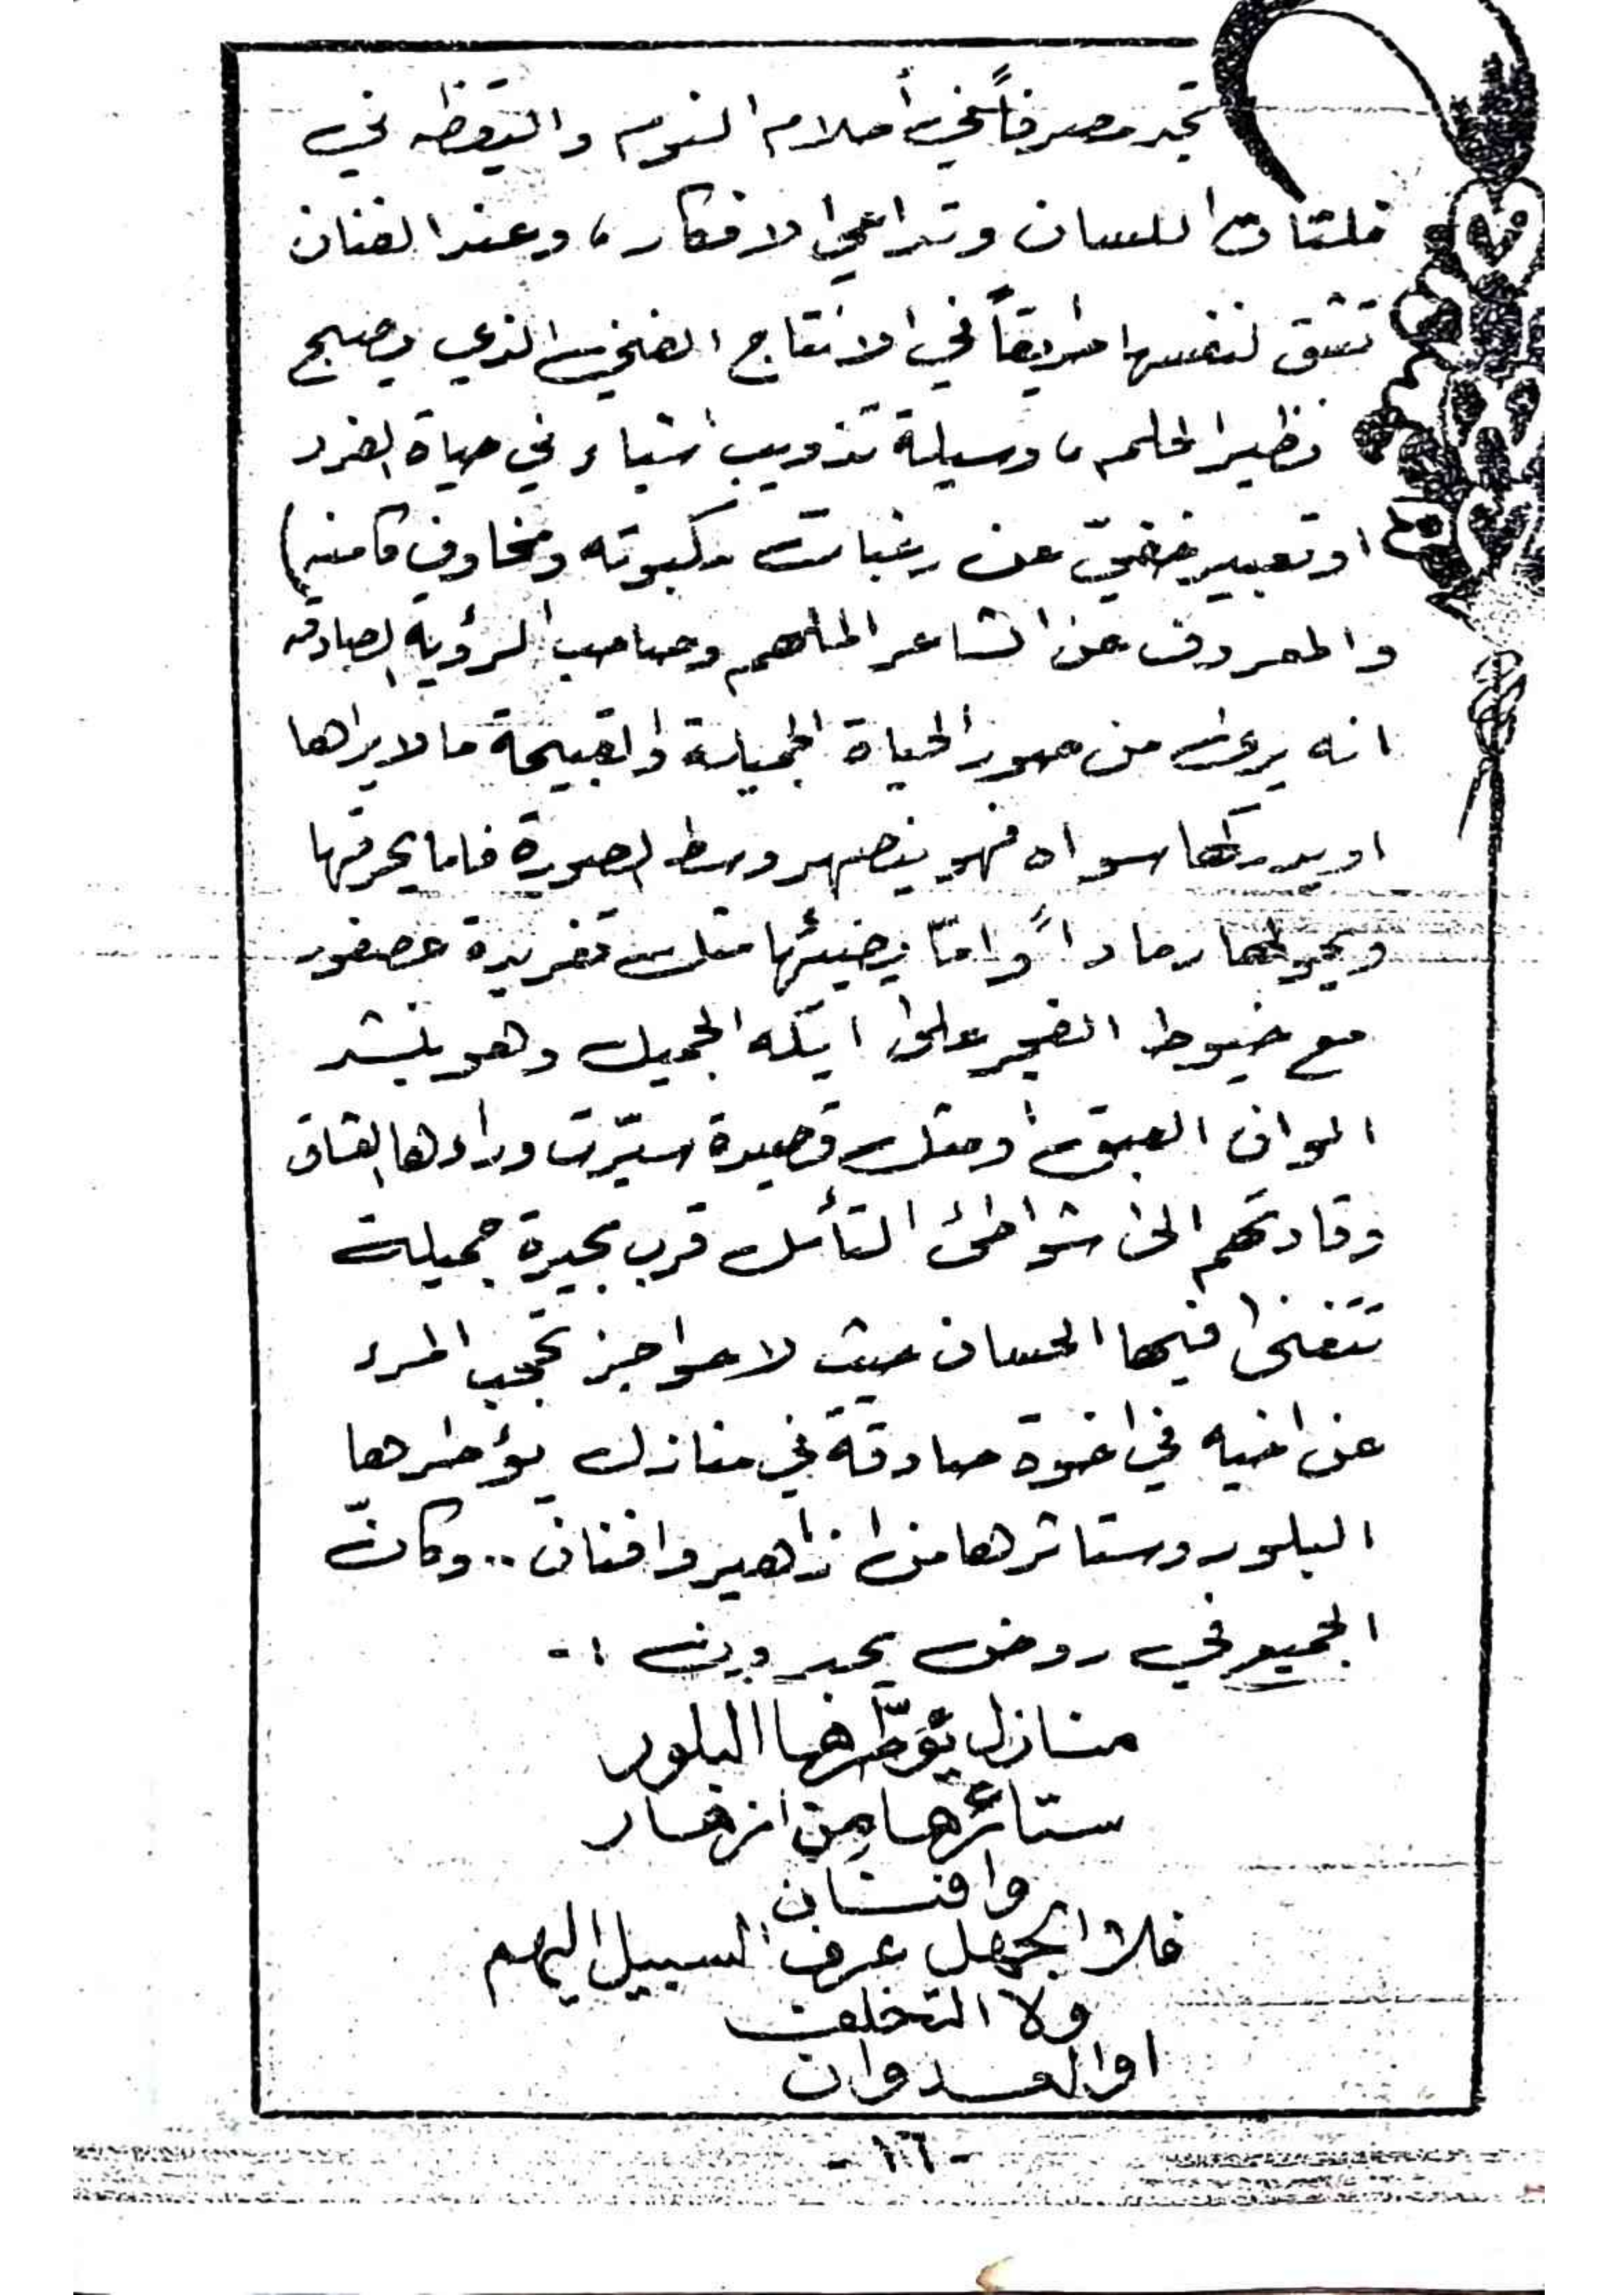 تجد مصرفاً في أحلام النوم واليقظه في
فلتات اللسان وتداعي الافكار، وعند الفنان
تشق لنفسها طريقاً في الانتاج الفني الذي يصبح
نظير الحلم، وسيلة تذويب اشياء في حياة الفرد
او تعبير خفيّ عن رغبات مكبوته ومخاوف كامنه)
والمعروف عن الشاعر الملهم وصاحب الرؤيه الصادقه
انه يرى من صور الحياة الجميلة والقبيحة ما لا يراها
او يدركها سواه فهو ينصهر وسط الصورة فاما يحرقها
ويحولها رماداً وامّا يضيئها مثل تغريدة عصفور
مع خيوط الفجر على ايكه الجميل وهو ينشد
الوان العبق او مثل قصيدة سيّرت وراءها
وقادتهم الى شواطئ التأمل قرب بحيرة جميلة
تتغنى فيها الحسان حيث لا حواجز تحجب المرء
عن اخيه في اخوة صادقة في منازل يؤطرها
البلور وستائرها من ازاهير وافنان .. وكانّ
الجميع في روض يحبرون :-
منازل يؤطّرها البلور
ستائرها من ازهار
وافنان
فلا الجهل عرف السبيل اليهم
ولا التخلف
او العدوان
- ١٦ -